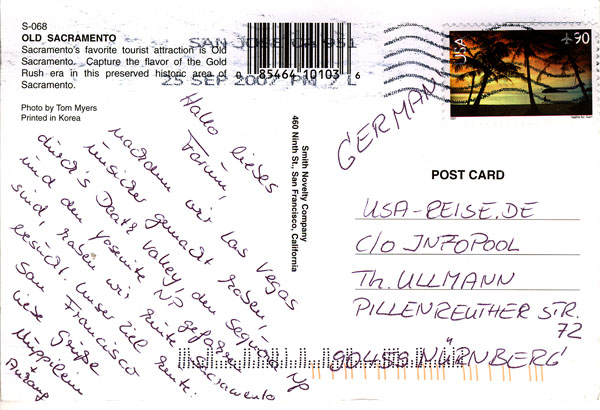 S-068
OLD SACRAMENTO
Sacramento's favorite tourist attraction is Old
Sacramento. Capture the flavor of the Gold
Rush era in this preserved historic area of
Sacramento.
Photo by Tom Myers
Printed in Korea
SAN JOSE CA 951
25 SEP 2007 PM 2 L
0 85464 10103 6
USA
90
Smith Novelty Company
460 Ninth St., San Francisco, California
Hallo liebes
Forum,
nachdem wir Las Vegas
unsicher gemacht haben,
durch's Death Valley, den Sequoia NP
und den Yosemite NP gefahren
sind, haben wir heute Sacramento
besucht. Unser Ziel heute:
San Francisco
Liebe Grüße
GERMANY
POST CARD
USA-REISE.DE
C/O INFOPOOL
TH. ULLMANN
PILLENREUTHER STR.
72
90459 NÜRNBERG